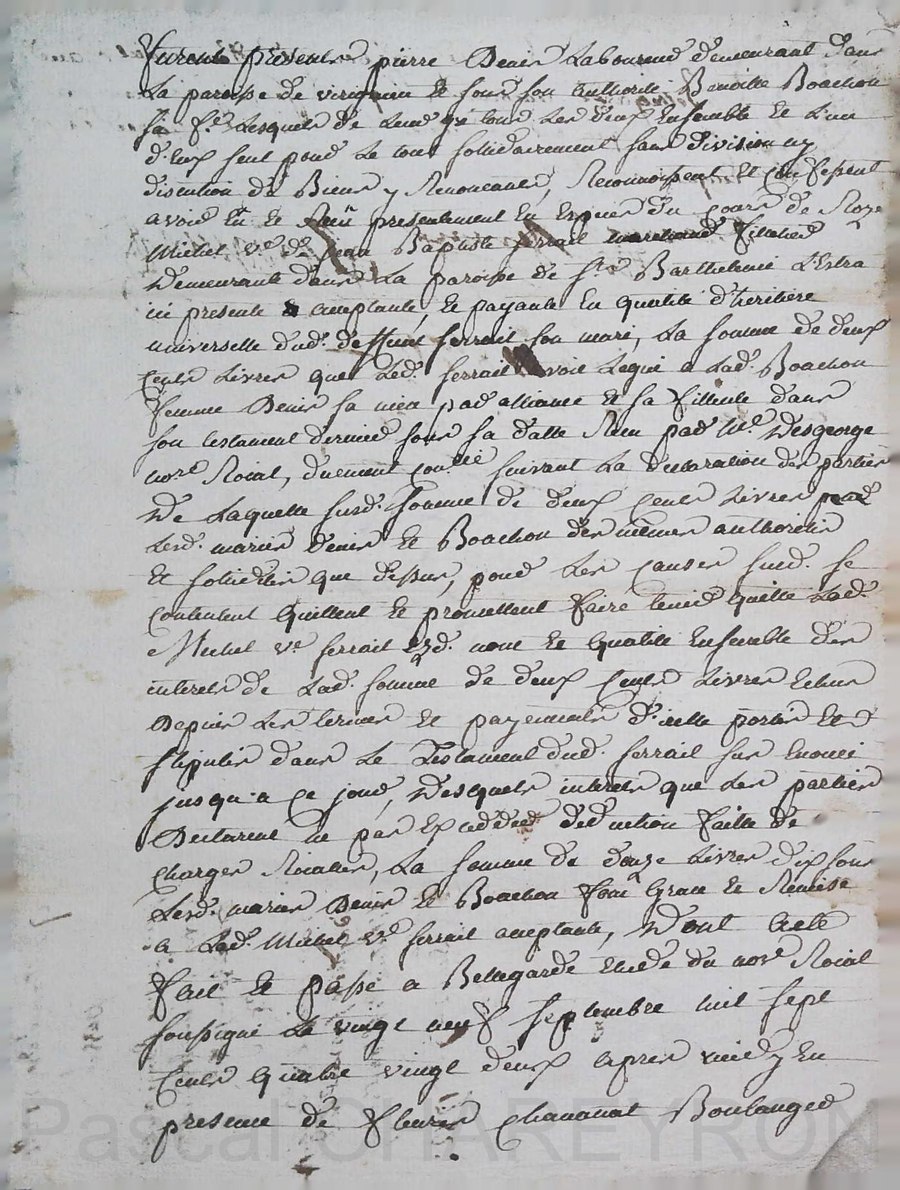 furent présents pierre Denis Laboureur demeurant dans
La paroisse de et sous son authorité Benoitte Boachon
sa fe. Lesquels de leur gré tous Les deux Ensemble et L'un
d'Eux seul pour Le tout solidairement sans division ny
discution de Biens y Renoncants, Reconnoissent et confessent
avoir Eu et Reçu presentement En Espices du cours de Roze
Michel ve. de jean Baptiste ferrail marchand
Demeurante dans La paroisse de St. Barthelemi L'Estra
ici presente acceptante, et payante En qualité d'heritiere
universelle dud. deffunt ferrail son mari, La somme de deux
Cents Livres que Led. ferrail avoit Legué a Lad. Boachon
femme Denis sa niece par alliance et sa filleule dans
son testament dernier sous sa datte Reçu par Me. Desgeorge
nore. Roial, duement suivant La declaration des parties
De Laquelle susd. somme de deux Cents Livres
Lesd. mariés Denis et Boachon des mêmes authorités
et solidités que dessus, pour Les causes susd. se
contentent quittent et promettent faire tenir quitte Lad.
Michel ve. ferrail aud. nom et qualité Ensemble des
interets de Lad. somme de deux Cents Livres Echus
Depuis Les termes et payements d'icelle portés et
stipulés dans Le Testament dud. ferrail sus Enoncé
jusqu'a ce jour, Desquels interets que Les parties
Declarent ne pas Exceder deduction faitte de
charges Roialles, La somme de douze Livres dix sous
Lesd. mariés Denis et Boachon font Grace et Remise
a Lad. Michel ve. ferrail acceptante, Dont acte
fait et passé a Bellegarde Etude du nore. Roial
soussigné Le vingt neuf septembre mil sept
Cents quatre vingt deux apres midy En
presence de fleury Chananat Boulanger
Pascal CHAREYRON